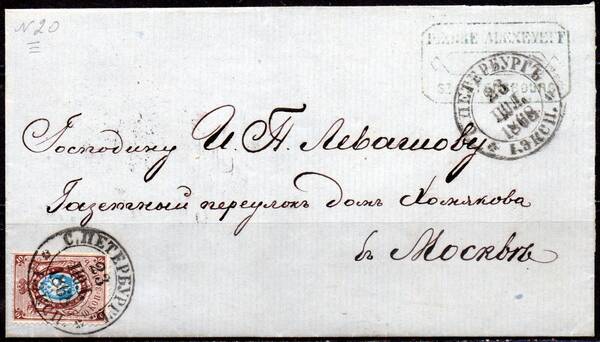 N 20
PIERRE ALEXEYEFF
С. ПЕТЕРБУРГЪ
23
ІЮЛ.
1868
1. ЭКСП.
Господину И. П. Левашову
Газетный переулокъ домъ Хомякова
въ Москвѣ
С. ПЕТЕРБУРГЪ
23
ІЮЛ.